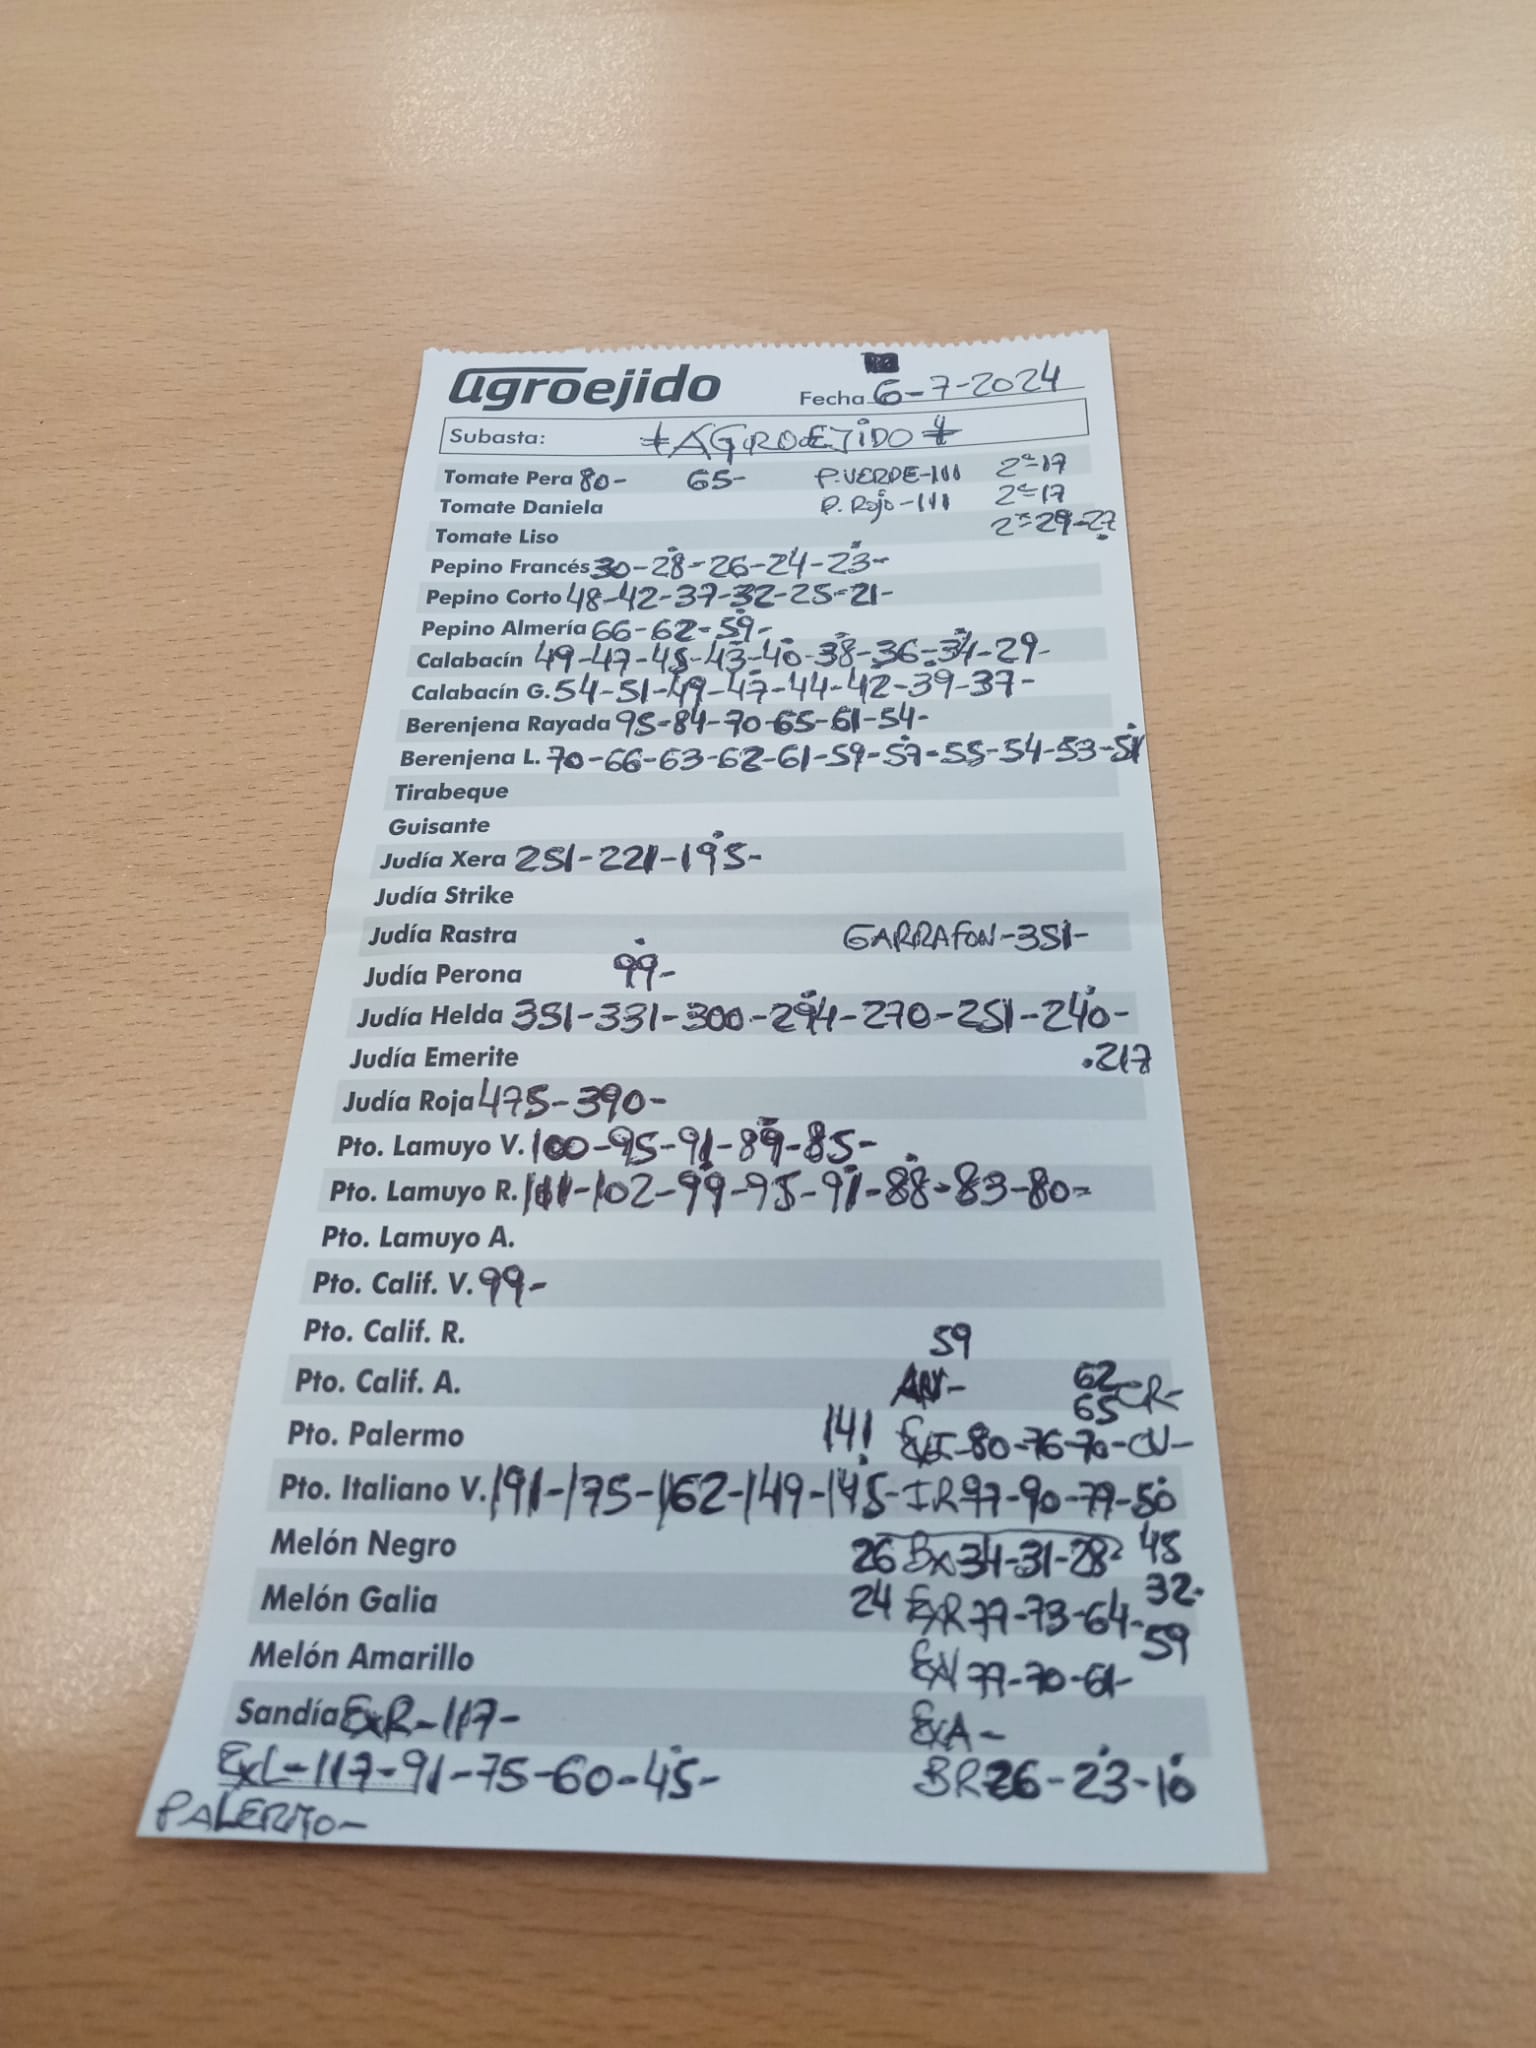 agroejido Fecha 6-7-2024
Subasta: AGROEJIDO
Tomate Pera 80- 65- P.VERDE-111 2ª-17
Tomate Daniela P. Rojo-111 2ª=17
Tomate Liso 2ª=29-27
Pepino Francés 30-28-26-24-23-
Pepino Corto 48-42-37-32-25-21-
Pepino Almería 66-62-59-
Calabacín 49-47-45-43-40-38-36-34-29-
Calabacín G. 54-51-49-47-44-42-39-37-
Berenjena Rayada 95-84-70-65-61-54-
Berenjena L. 70-66-63-62-61-59-57-55-54-53-51
Tirabeque
Guisante
Judía Xera 251-221-195-
Judía Strike
Judía Rastra GARRAFON-351-
Judía Perona 99-
Judía Helda 351-331-300-294-270-251-240-
Judía Emerite .217
Judía Roja 475-390-
Pto. Lamuyo V. 100-95-91-89-85-
Pto. Lamuyo R. 111-102-99-95-91-88-83-80=
Pto. Lamuyo A.
Pto. Calif. V. 99-
Pto. Calif. R. 59
Pto. Calif. A. AN- 62 65 CR-
Pto. Palermo 141 80-76-70-CV-
Pto. Italiano V. 191-175-162-149-145- IR 97-90-79-50
Melón Negro 26 Bx 34-31-28 45
Melón Galia 24 ExR 77-73-64- 32.
Melón Amarillo ExV 77-70-61- 59
Sandía ExR-117- ExA-
ExL-117-91-75-60-45- BR 26-23-10
PALERMO-